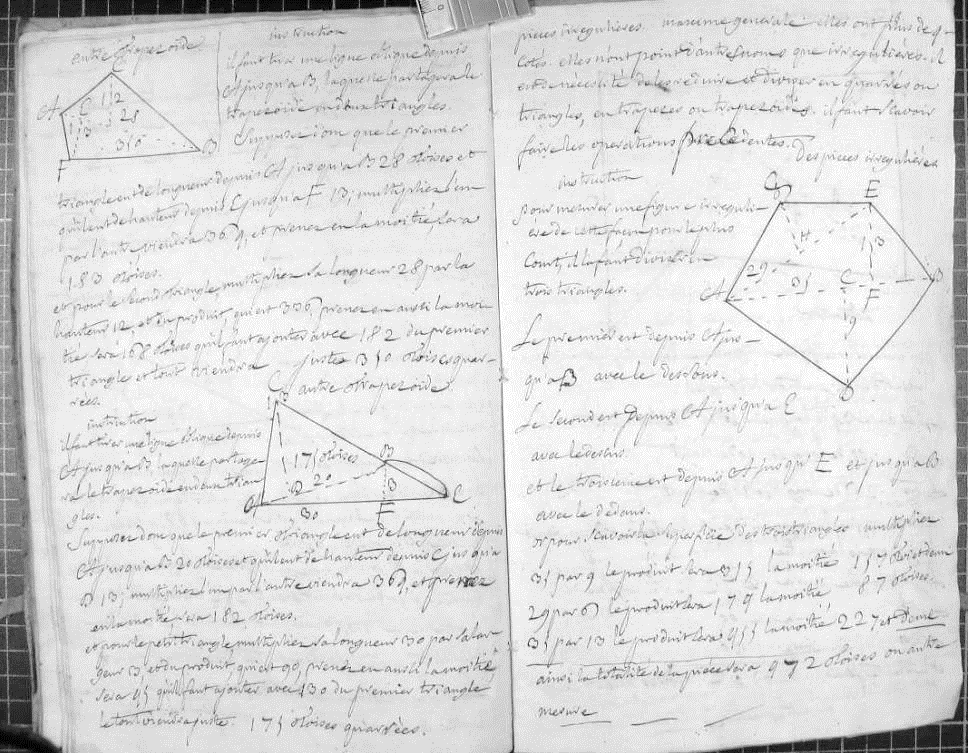 autre trapezoide
instruction
il faut tirer une ligne oblique depuis
A jusqu'a B, laquelle partagera le
trapezoide en deux triangles.
Supposez donc que le premier
C
A
C
12
13
28
350
B
F
triangle est de longueur depuis A jusqu'a B 28 toises et
qu'il ent de hauteur depuis C jusqu'a F 13; multipliez l'un
par l'autre viendra 364, et prenez en la moitié, sera
183 toises.
et pour le second triangle, multipliez sa longueur 28 par la
hauteur 12, et du produit, qui est 336, prenez en aussi la moi
tié sera 168 toises qu'il faut ajouter avec 182 du premier
triangle et tout viendra juste 350 toises quar-
rées.
autre trapezoide
instruction
il faut tirer une ligne oblique depuis
A jusqu'a B laquelle partage-
ra le trapezoide en deux trian
gles.
C
175 toises
B
20
3
30
F
C
Supposez donc que le premier triangle est de longueur depuis
A jusqu'a B 20 toises et qu'il ent de hauteur depuis C jusqu'a
D 13; multipliez l'un par l'autre viendra 364, et prenez
en la moitié sera 182 toises.
et pour le petit triangle multipliez sa longueur 30 par sa lar
geur 3, et du produit, qui est 90, prenez en aussi la moitié
sera 45 qu'il faut ajouter avec 130 du premier triangle
le tout viendra juste. 175 toises quarrées.
pieces irregulieres. maxime generale elles ont plus de 4
cotés. elles n'ont point d'autres noms que irregulieres. il
est de nécessité de les reduire et diviser en quarrés ou
triangles, en trapezes ou trapezoides. il faut scavoir
faire les operations precedentes.
Des pieces irregulieres
instruction
pour mesurer une figure irreguli-
ere de cette facon pour le plus
court, il la faut diviser en
trois triangles.
G
E
H
13
29
35
C
A
F
B
9
D
Le premier est depuis A jus-
qu'a B avec le dessous.
Le second est depuis A jusqu'a E
avec le dessus.
et le troisieme est depuis A jusqu' E et jusqu'a B
avec le dedans.
or pour scavoir la superficie des trois triangles multipliez
35 par 9 le produit sera 315 la moitié 157 toises et demi
29 par 6 le produit sera 174 la moitié 87 toises.
35 par 13 le produit sera 455 la moitié 227 et demie
ainsi la totalité de la piece sera 472 toises ou autre
mesure